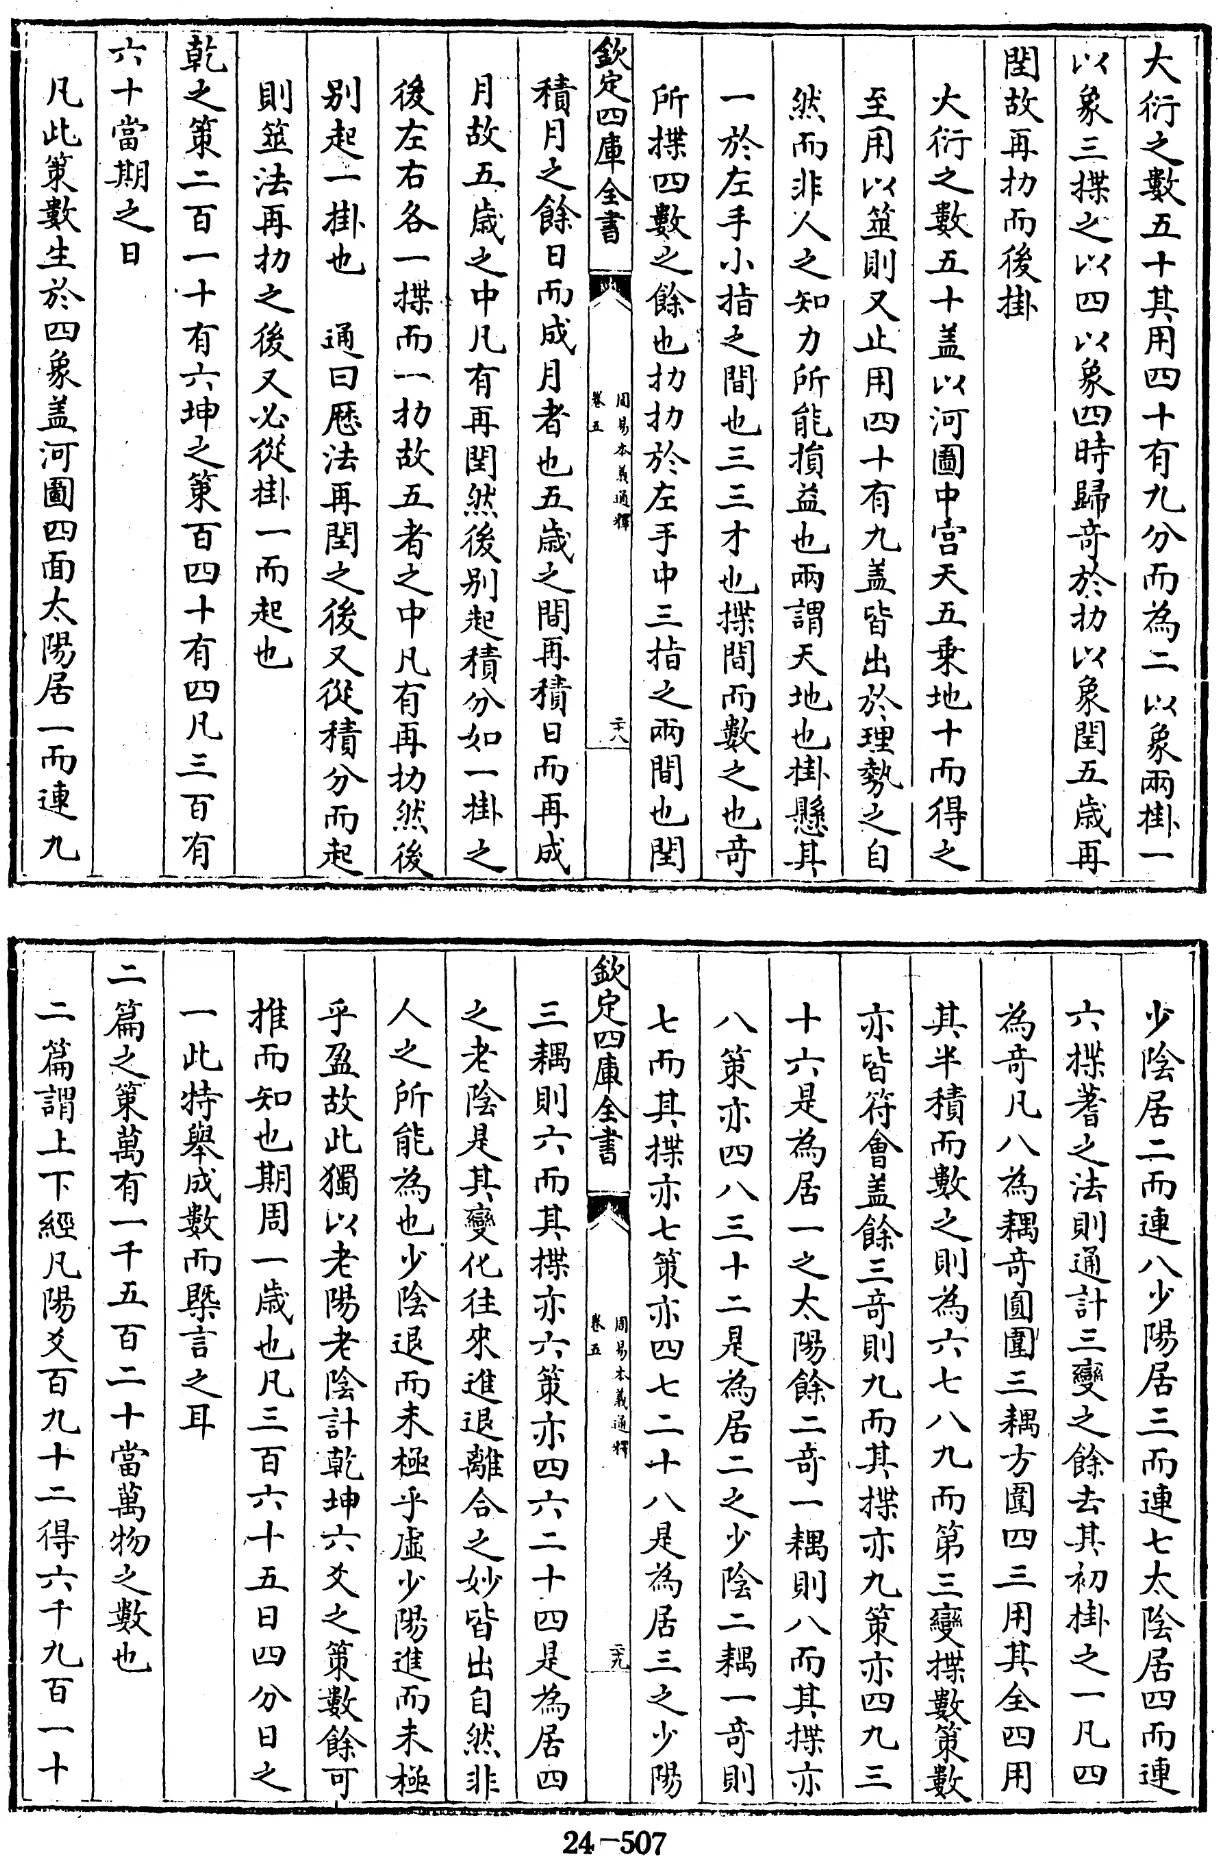 大衍之數五十其用四十有九分而為二以象兩掛一
以象三揲之以四以象四時歸奇於扐以象閏五歳再
閏故再扐而後掛
大衍之數五十盖以河圖中宫天五乗地十而得之
至用以筮則又止用四十有九盖皆出於理勢之自
然而非人之知力所能損益也兩謂天地也掛懸其
一於左手小指之間也三三才也揲間而數之也奇
所揲四數之餘也扐扐於左手中三指之兩間也閏
欽定四庫全書
周易本義通釋
卷五
二十八
積月之餘日而成月者也五歳之間再積日而再成
月故五歳之中凡有再閏然後别起積分如一掛之
後左右各一揲而一扐故五者之中凡有再扐然後
别起一掛也 通曰厯法再閏之後又從積分而起
則筮法再扐之後又必從掛一而起也
乾之策二百一十有六坤之策百四十有四凡三百有
六十當期之日
凡此策數生於四象盖河圖四面太陽居一而連九
少陰居二而連八少陽居三而連七太陰居四而連
六揲蓍之法則通計三變之餘去其初掛之一凡四
為奇凡八為耦奇圓圍三耦方圍四三用其全四用
其半積而數之則為六七八九而第三變揲數策數
亦皆符會盖餘三奇則九而其揲亦九策亦四九三
十六是為居一之太陽餘二奇一耦則八而其揲亦
八策亦四八三十二是為居二之少陰二耦一奇則
七而其揲亦七策亦四七二十八是為居三之少陽
欽定四庫全書
周易本義通釋
卷五
二十九
三耦則六而其揲亦六策亦四六二十四是為居四
之老陰是其變化往來進退離合之妙皆出自然非
人之所能為也少陰退而未極乎虛少陽進而未極
乎盈故此獨以老陽老陰計乾坤六爻之策數餘可
推而知也期周一歳也凡三百六十五日四分日之
一此特舉成數而槩言之耳
二篇之策萬有一千五百二十當萬物之數也
二篇謂上下經凡陽爻百九十二得六千九百一十
24-507